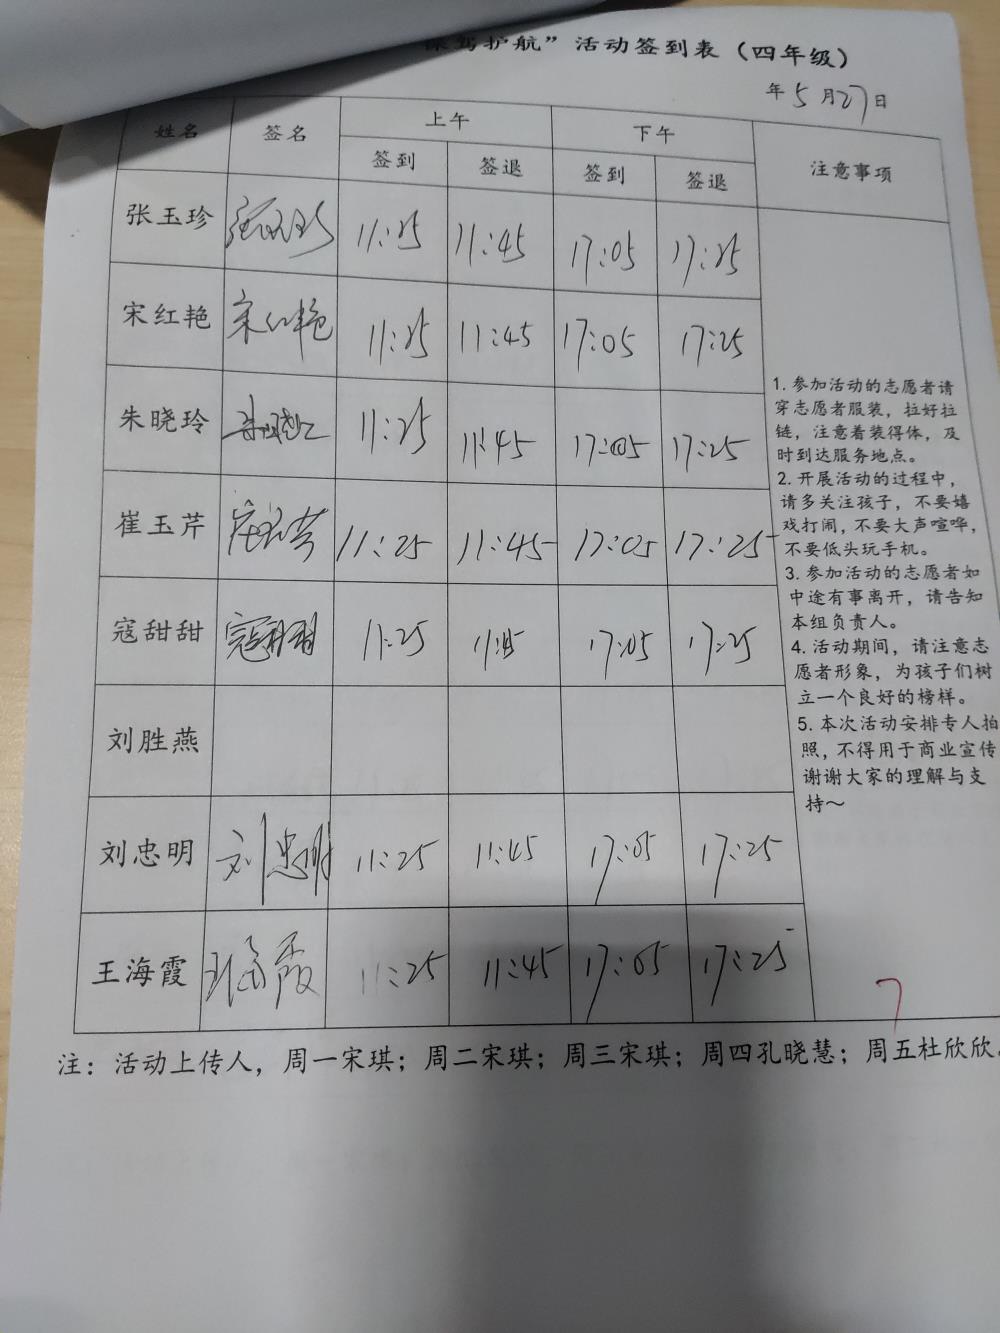 驾护航”活动签到表（四年级）
年5月27日
姓名 签名 上午 下午 注意事项
签到 签退 签到 签退
张玉珍 张玉珍 11:25 11:45 17:05 17:25
宋红艳 宋红艳 11:25 11:45 17:05 17:25
朱晓玲 11:25 11:45 17:05 17:25
崔玉芹 崔玉芹 11:25 11:45 17:05 17:25
寇甜甜 寇甜甜 11:25 11:45 17:05 17:25
刘胜燕
刘忠明 刘忠明 11:25 11:45 17:05 17:25
王海霞 王海霞 11:25 11:45 17:05 17:25
1. 参加活动的志愿者请
穿志愿者服装，拉好拉
链，注意着装得体，及
时到达服务地点。
2. 开展活动的过程中，
请多关注孩子，不要嬉
戏打闹，不要大声喧哗，
不要低头玩手机。
3. 参加活动的志愿者如
中途有事离开，请告知
本组负责人。
4. 活动期间，请注意志
愿者形象，为孩子们树
立一个良好的榜样。
5. 本次活动安排专人拍
照，不得用于商业宣传
谢谢大家的理解与支
持～
7
注：活动上传人，周一宋琪；周二宋琪；周三宋琪；周四孔晓慧；周五杜欣欣。